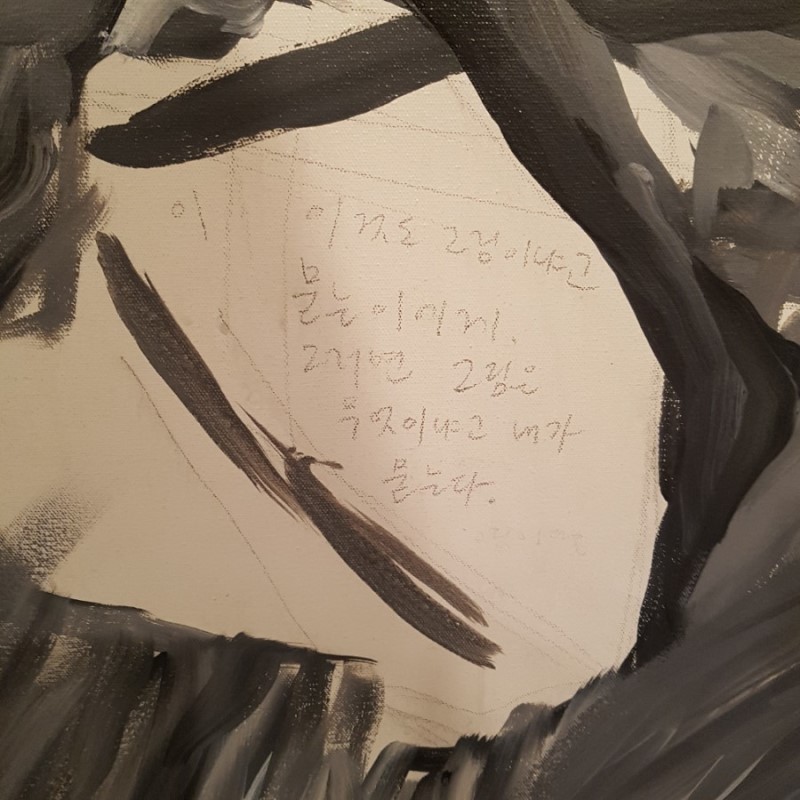 이
이것도 그림이냐고
묻는 이에게,
그러면 그림은
무엇이냐고 내가
묻는다.